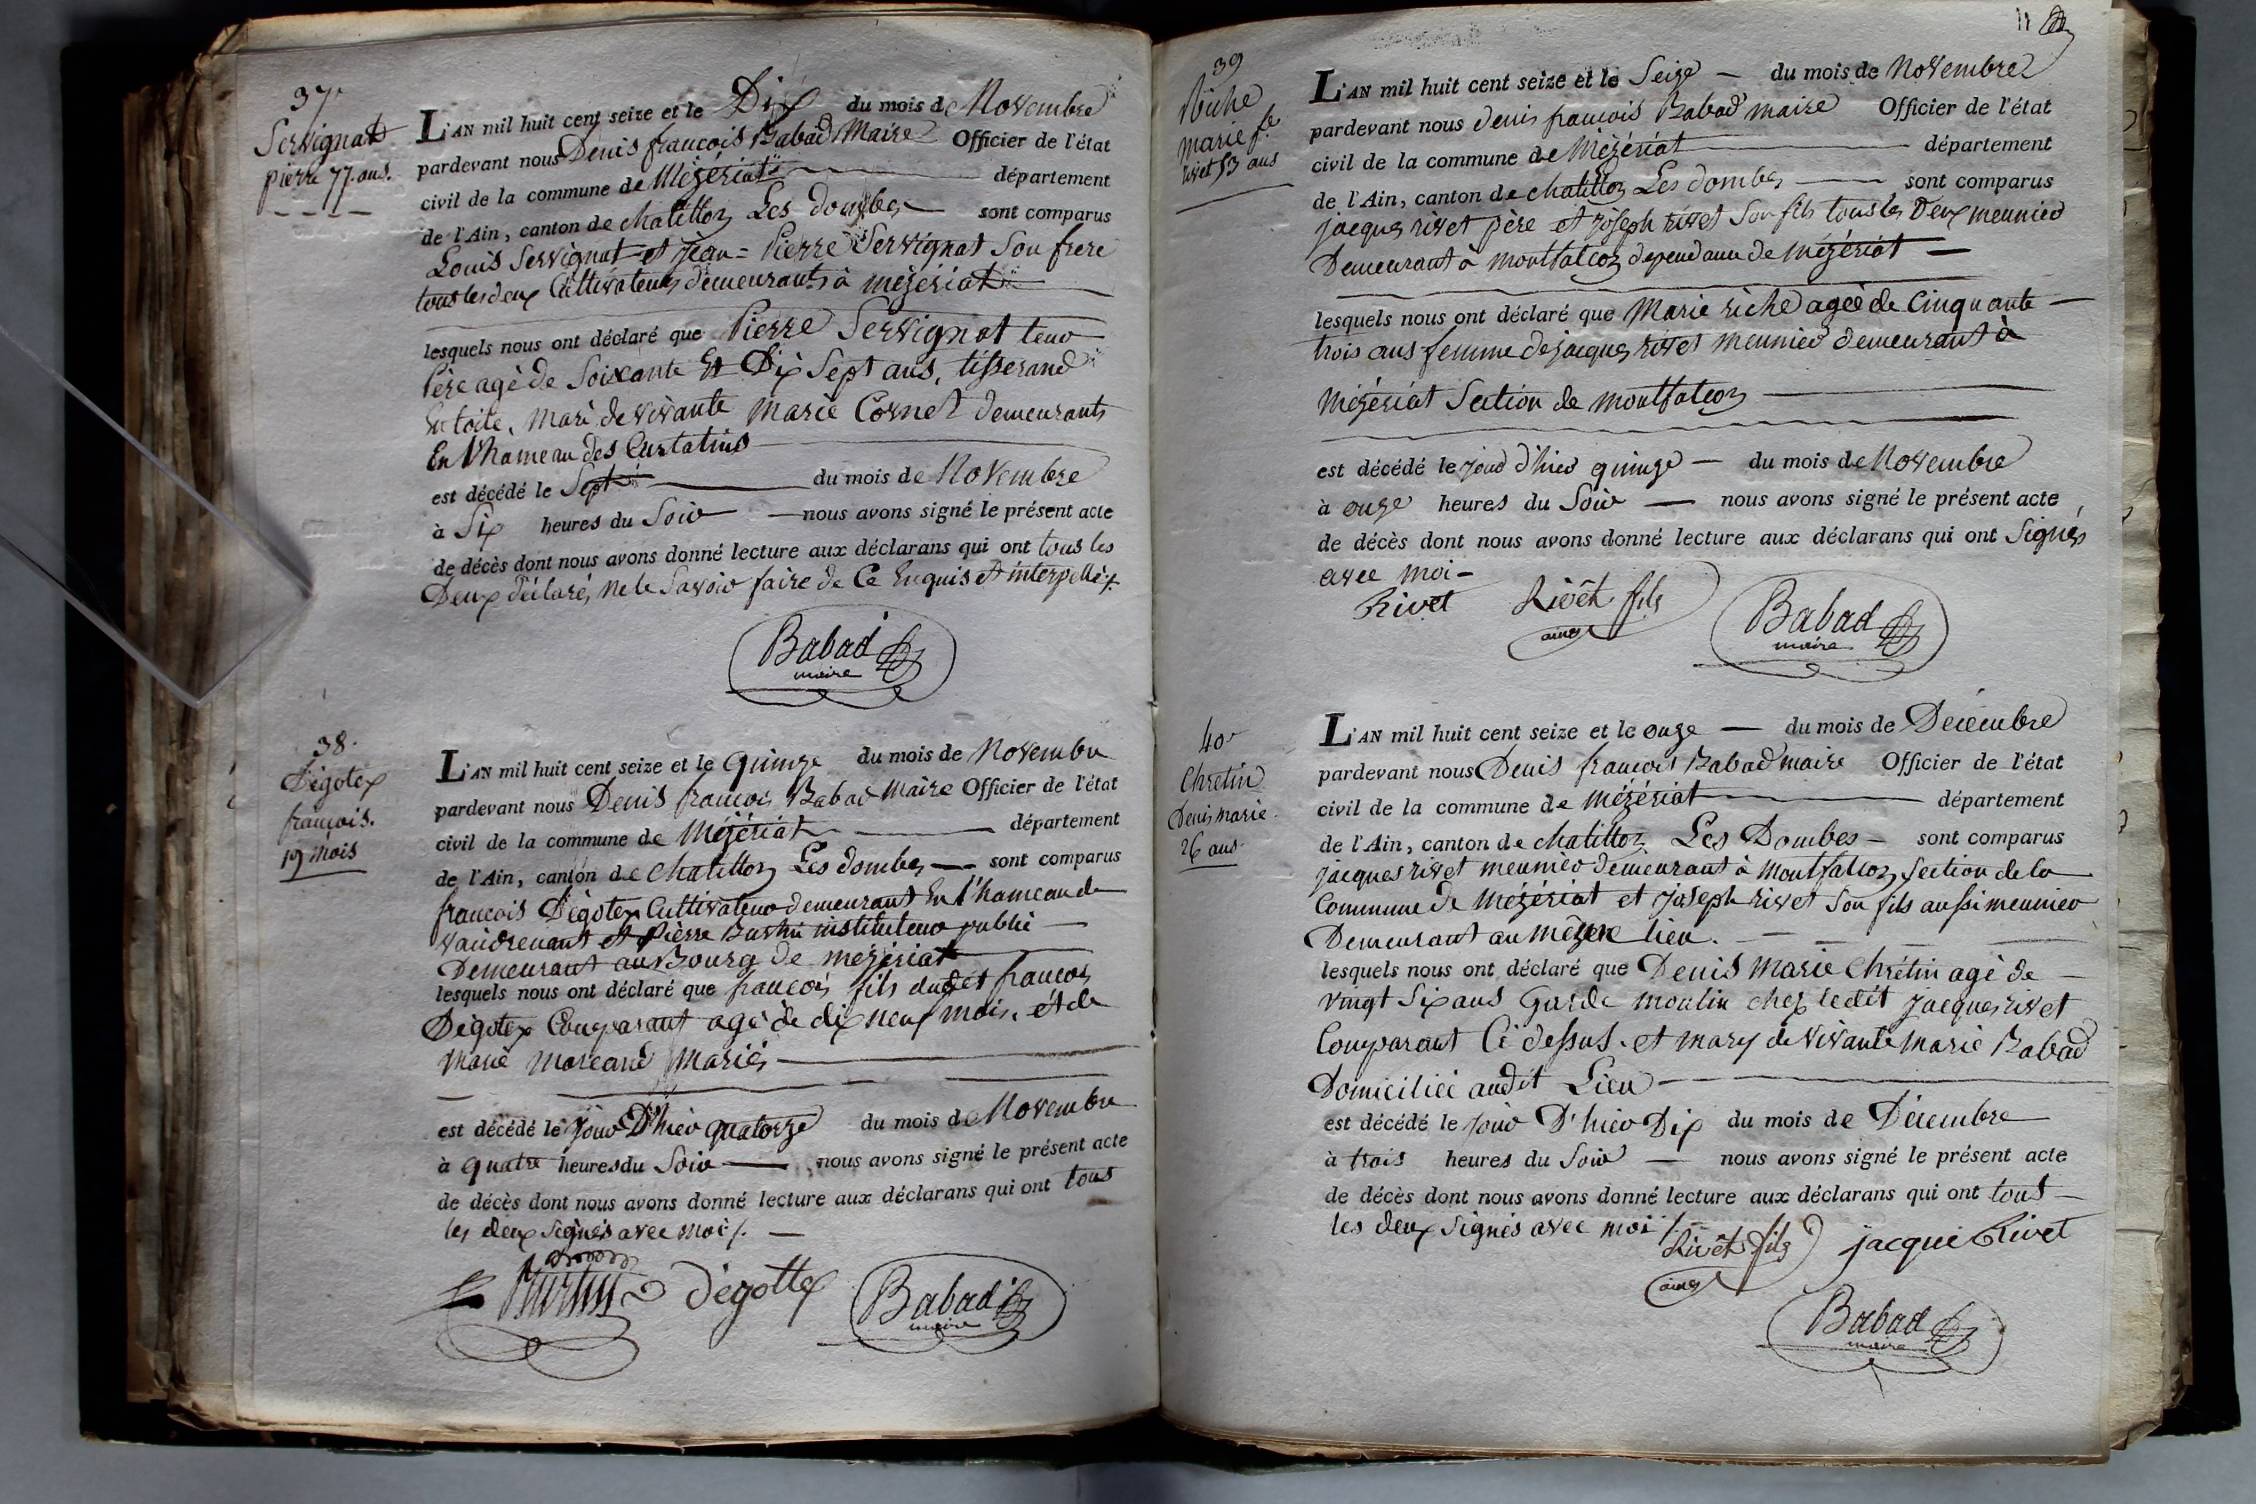 37
Servignat
pierre 77. ans.
L'AN mil huit cent seize et le Dix du mois de Novembre
pardevant nous Denis francois Babad Maire Officier de l'état
civil de la commune de Mézériat département
de l'Ain, canton de chatillon Les dombes sont comparus
Louis Servignat et jean = Pierre Servignat Son frere
tous les deux Cultivateurs demeurants à mézériat
lesquels nous ont déclaré que Pierre Servignat leur
Père agé de Soixante Et Dix Sept ans, tisserand
En toile, Mari de vivante Marie Cornet demeurants
En l'hameau des Curtatins
est décédé le Sept du mois de Novembre
à Six heures du Soir nous avons signé le présent acte
de décès dont nous avons donné lecture aux déclarans qui ont tous les
Deux déclarés ne le Savoir faire de Ce Enquis et interpellés/.
Babad
maire
38.
Dégotex
francois.
19 mois
L'AN mil huit cent seize et le quinze du mois de Novembre
pardevant nous Denis francois Babad Maire Officier de l'état
civil de la commune de Mézériat département
de l'Ain, canton de chatillon Les dombes sont comparus
francois Dégotex Cultivateur demeurant En l'hameau de
vaudrenant et Pierre Burtin instituteur public
Demeurant au Bourg de mézériat
lesquels nous ont déclaré que francois fils dudet francois
Dégotex Comparant agé de dix neuf mois, et de
Marie Moreand Mariés
est décédé le jour D'hier quatorze du mois de Novembre
à quatre heures du Soir nous avons signé le présent acte
de décès dont nous avons donné lecture aux déclarans qui ont tous
les deux Signés avec moi/.
Burtin Dégottex Babad
maire
11
39
Riche
marie fe
rivet 53 ans
L'AN mil huit cent seize et le Seize du mois de Novembre
pardevant nous denis francois Babad maire Officier de l'état
civil de la commune de Mézériat département
de l'Ain, canton de chatillon Les dombes sont comparus
jacques rivet père et joseph rivet Son fils tous les Deux meunier
Demeurant à montfalcon dependance de mézériat
lesquels nous ont déclaré que Marie riche agée de Cinquante
trois ans femme de jacques rivet meunier demeurant à
Mézériat Section de montfalcon
est décédé le jour d'hier quinze du mois de Novembre
à onze heures du Soir nous avons signé le présent acte
de décès dont nous avons donné lecture aux déclarans qui ont Signés
avec moi
Rivet Rivêt fils Babad
ainé maire
40
Chretin
Denis marie
26 ans
L'AN mil huit cent seize et le onze du mois de Décembre
pardevant nous Denis francois Babad maire Officier de l'état
civil de la commune de Mézériat département
de l'Ain, canton de chatillon Les Dombes sont comparus
jacques rivet meunier demeurant à Montfalcon Section de la
Commune de Mézériat et joseph rivet Son fils aussi meunier
Demeurant au même lieu.
lesquels nous ont déclaré que Denis Marie Chrétin agé de
vingt Six ans Garde moulin chez ledit jacques rivet
Comparant Ci dessus. et mary de vivante marie Babad
Domiciliée audit Lieu
est décédé le jour D'hier Dix du mois de Décembre
à trois heures du Soir nous avons signé le présent acte
de décès dont nous avons donné lecture aux déclarans qui ont tous
les deux Signés avec moi/.
Rivêt fils jacque Rivet
ainé
Babad
maire